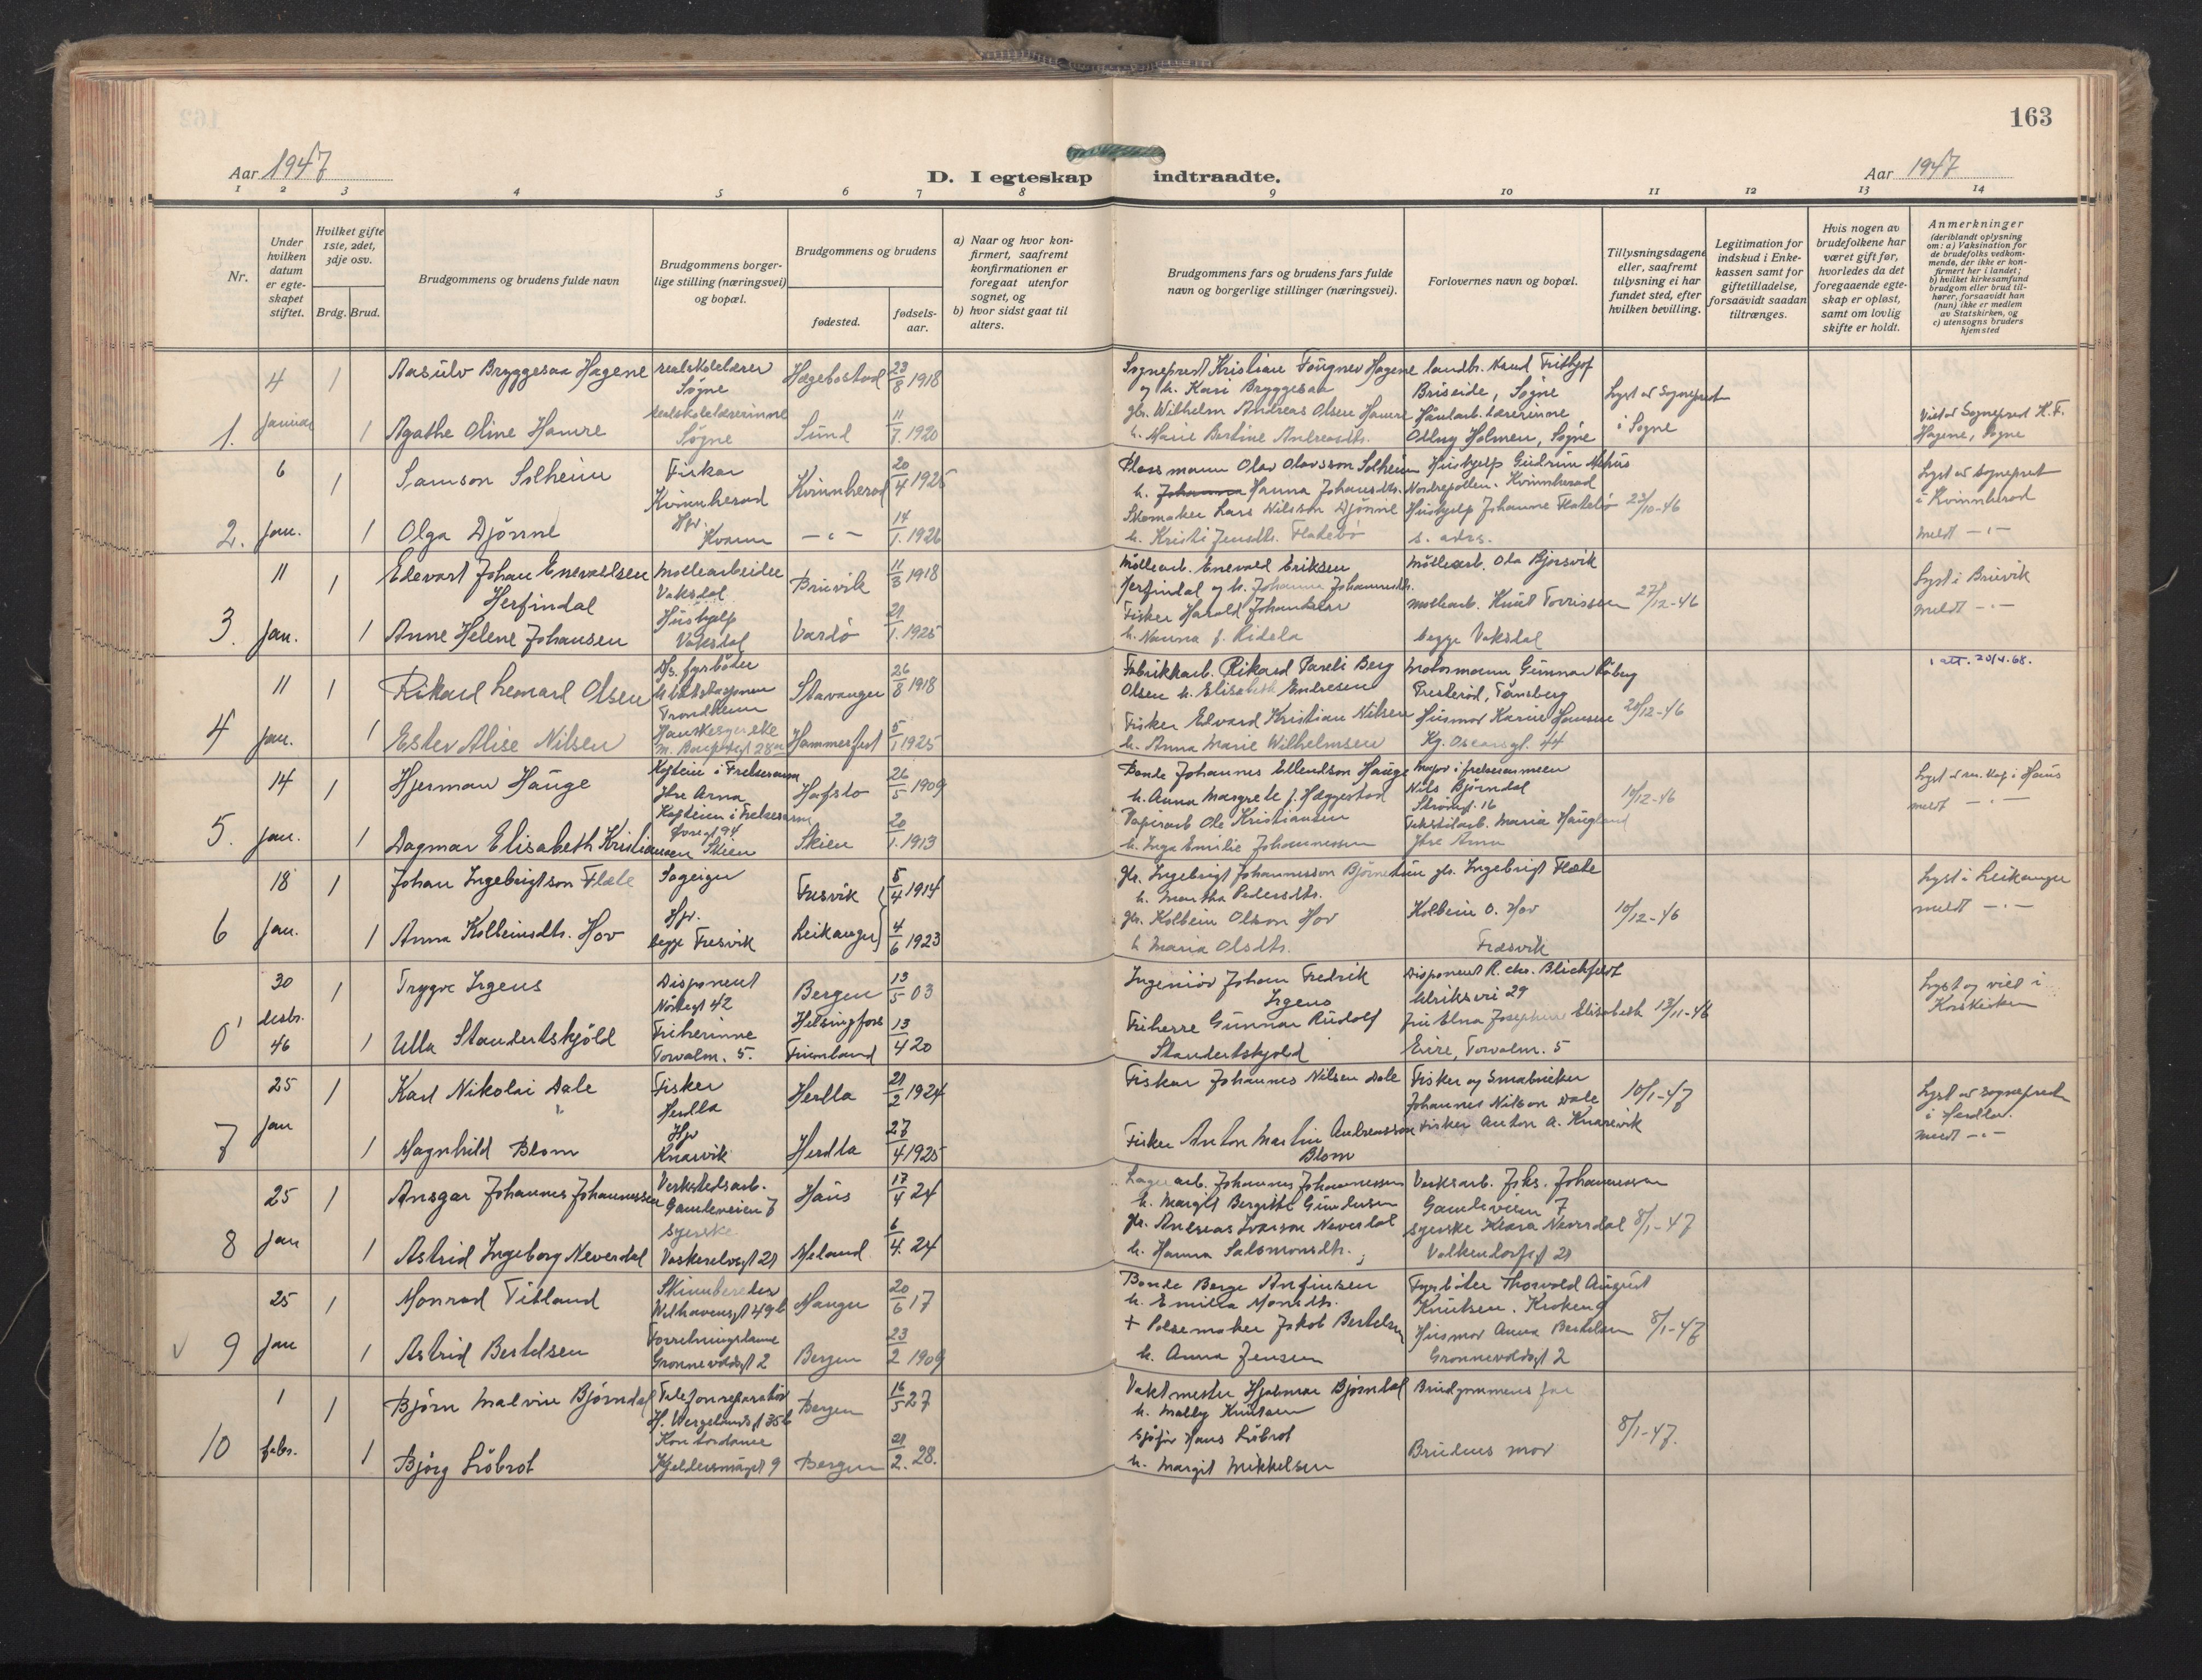 163
Aar 1947
D. I egteskap indtraadte.
Aar 1947
1 2 3 4 5 6 7 8 9 10 11 12 13 14
Nr.
Under hvilken datum er egteskapet stiftet.
Hvilket gifte 1ste, 2det, 3dje osv.
Brdg. Brud.
Brudgommens og brudens fulde navn
Brudgommens borgerlige stilling (næringsvei) og bopæl.
Brudgommens og brudens
fødested.
fødselsaar.
a) Naar og hvor konfirmert, saafremt konfirmationen er foregaat utenfor sognet, og
b) hvor sidst gaat til alters.
Brudgommens fars og brudens fars fulde navn og borgerlige stillinger (næringsvei).
Forlovernes navn og bopæl.
Tillysningsdagene eller, saafremt tillysning ei har fundet sted, efter hvilken bevilling.
Legitimation for indskud i Enkekassen samt for giftetilladelse, forsaavidt saadan tiltrænges.
Hvis nogen av brudefolkene har været gift før, hvorledes da det foregaaende egteskap er opløst, samt om lovlig skifte er holdt.
Anmerkninger
(deriblandt oplysning om: a) Vaksination for de brudefolks vedkommende, der ikke er konfirmert her i landet;
b) hvilket kirkesamfund brudgom eller brud tilhører, forsaavidt han (hun) ikke er medlem av Statskirken, og
c) utensogns bruders hjemsted
1. 4 Januar 1 Aasulv Bryggesaa Hagene realskolelærer Søgne Hægebostad 23/8 1918
Sogneprest Kristian Fougner Hagene og h. Kari Bryggesaa
landbr. Knud Frithjof Briseide, Søgne
Lyst av Sogneprest i Søgne
Viet av Sogneprest K. F. Hagene, Søgne
1 Agathe Oline Hamre realskolelærerinne Søgne Sund 11/7. 1920
gbr. Wilhelm Andreas Olsen Hamre h. Marie Bertine Andreasdtr.
Håndarb.lærerinne Holmen, Søgne
2. 6 Jan. 1 Samson Solheim Fisker Kvinnherad Kvinnherad 20/4 1925
Plassmann Olav Olavsson Solheim h. Hanna Johansdtr.
Hushjelp Gudrun Nordrepollen. Kvinnherad
23/10-46
Lyst av sogneprest i Kvinnherad
meldt - " -
1 Olga Djønne Hpr. Kvam - " - 14/1. 1926
Skomaker Lars Nilsson Djønne h. Kristi Jensdtr. Flatebø
Hushjelp Johanne Flatebø s. adrs.
3. 11 Jan. 1 Edevart Johan Enevaldsen Herfindal Møllearbeider Vaksdal Bruvik 11/3 1918
Møllearb. Enevald Eriksen Herfindal og h. Johanna Johannesdtr.
Møllearb. Ola Bjørsvik
27/12-46
Lyst i Bruvik
meldt - " -
1 Anne Helene Johansen Hushjelp Vaksdal Vardø 21/1. 1925
Fisker Harald Johansen h. Nanna f. Ridela
møllearb. Knut Torrissen begge Vaksdal
4 11 Jan. 1 Rikard Leonard Olsen fyrbøter Trondheim Stavanger 26/8 1918
Fabrikkarb. Rikard Pareli Berg Olsen h. Elisabeth Endresen
Motormann Gunnar Presterød, Tønsberg
20/12-46
1 att. 20/4.68.
1 Ester Alise Nilsen Hammerfest 5/1 1925
Fisker Edvard Kristian Nilsen h. Anna Marie Wilhelmsen
Husmor Karin Hansen Kg. Oscarsgt. 44
5. 14 jan. 1 Hjerman Hauge Kaptein i Frelsesarm Ytre Arna Hafslo 26/5 1909
Bonde Johannes Ellendson Hauge h. Anna Margrete f. Hæggestad
Major i frelsesarmeen Nils Bjørndal Strømgt. 16
10/12-46
Lyst i Haus
meldt - " -
1 Dagmar Elisabeth Kristiansen Kaptein i Frelsesarm Skien Skien 20/1. 1913
Papirarb Ole Kristiansen h. Inga Emilie Johannessen
Tekstilarb. Maria Haugland Ytre Arna
6 18 Jan. 1 Johan Ingebrigtson Flæte Sageiger Fresvik 5/4 1914
gbr. Ingebrigt Johannesson Bjørnetun h. Martha Pedersdtr.
gbr. Ingebrigt Flæte
10/12-46
Lyst i Leikanger
meldt - " -
1 Anna Kolbeinsdtr. Hov Hpr. begge Fresvik Leikanger 4/6 1923
gbr. Kolbein Olson Hov h Maria Olsdtr.
Kolbein O. Hov Fresvik
0' 30 desbr. 46 1 Trygve Irgens Disponent Nøstegt 42 Bergen 13/5 03
Ingeniør Johan Fredrik Irgens
Disponent R. chr. Blichfeldt Ulriksvei 29
13/11-46
Lyst og viet i Korskirken
1 Ulla Standertskjöld Friherinne Torvalm. 5. Helsingfors Finnland 13/4 20
Friherre Gunnar Rudolf Standertskjold
Fru Elna Josephine Elisabeth Torvalm. 5
7 25 Jan 1 Karl Nikolai Dale Fisker Herdla Herdla 21/2 1924
Fisker Johannes Nilsen Dale
Fisker og Johannes Nilson Dale
10/1-47
Lyst av sogneprest i Herdla.
meldt - " -
1 Magnhild Blom Hpr Knarvik Herdla 27/4 1925
Fisker Anton Martin Andreasson Blom
Fisker Anton A. Knarrvik
8 25 Jan 1 Ansgar Johannes Johannessen Verkstedsarb. Gamleveien 7 Haus 17/4 24
Lagerarb. Johannes Johannessen h. Margit Bergitte Gundersen
Verksarb. Johs. Johannessen Gamleveien 7
8/1-47
1 Astrid Ingeborg Neverdal syerske Vaskerelvsgt 21 Meland 6/4. 24
gbr. Andreas Ivarson Neverdal h. Hanna Salomonsdtr.
syerske Klara Neverdal Valkendorfsgt 21
9 25 Jan 1 Monrad Titland Skinnbereder Welhavensgt 49b Manger 20/6 17
Bonde Berge Anfinsen h. Emilia Monsdtr.
Fyrbøter Thorvald August Knutsen. Krokeng
8/1-47
1 Astrid Bertelsen Forretningsdame Grønnevoldsgt 2 Bergen 23/2 1909
+ Pølsemaker Jakob Bertelsen h. Anna Jensen
Husmor Anna Bertelsen Grønnevoldsgt 2
10 1 febr. 1 Bjørn Malvin Bjørndal Telefonreparatør H. Wergelandsgt 35b Bergen 16/5 27
Vaktmester Hjalmar Bjørndal h. Mally Knutsen
Brudgommens far
8/1-47.
1 Bjørg Løbrot Kontordame 9 Bergen 21/2. 28.
sjåfør Hans Løbrot h. Margit Mikkelsen
Brudens mor